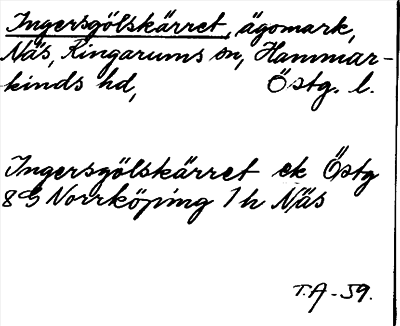 Ingersgölskärret, ägomark,
Näs, Ringarums sn, Hammar-
kinds hd, Östg. l.
Ingersgölskärret ek Östg
8G Norrköping 1h Näs
T.A-59.